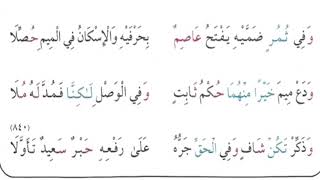 وَفِي ثُمُرٍ ضَمَّيْهِ يَفْتَحُ عَاصِمٌ بِحَرْفَيْهِ وَالْإِسْكَانُ فِي الْمِيمِ حُصِّلَا
وَدَعْ مِيمَ خَيْرًا مِنْهُمَا حُكْمُ ثَابِتٍ وَفِي الْوَصْلِ لٰكِنَّا فَمُدَّ لَهُ مُلَا
وَذَكِّرْ تَكُنْ شَافٍ وَفِي الْحَقِّ جَرُّهُ عَلَىٰ رَفْعِهِ حَبْرٌ سَعِيدٌ تَأَوَّلَا
(٨٤٠)